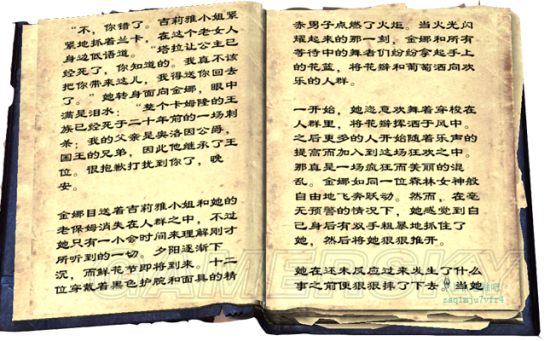 “不，你错了。吉莉雅小姐紧
紧地抓着兰卡，在这个老女人
身边低语道。“塔拉让公主已
经死了，你知道的。我真不该
把你带来这儿，我得送你回去
了。”她转身面向金娜，眼中
满是泪水：“整个卡姆隆的王
族已经死于二十年前的一场刺
杀；我的父亲是奥洛因公爵，
国王的兄弟，因此他继承了王
位。很抱歉打扰到你了，晚
安。
金娜目送着吉莉雅小姐和她的
老保姆消失在人群之中，不过
她只有一小会时间来理解刚才
所听到的一切。夕阳逐渐下
沉，而鲜花节即将到来。十二
位穿戴着黑色护腕和面具的精
赤男子点燃了火炬。当火光闪
耀起来的那一刻，金娜和所有
等待中的舞者们纷纷拿起手上
的花蓝，将花瓣和葡萄洒向欢
乐的人群。
一开始，她恣意欢舞着穿梭在
人群里，将花瓣挥洒于风中。
之后更多的人开始随着乐声的
提高而加入到这场狂欢之中。
那真是一场疯狂而美丽的混
乱。金娜如同一位森林女神般
自由地飞奔跃动。然而，在毫
无预警的情况下，她感觉到自
己身后有双手粗暴地抓住了
她，然后将她狠狠推开。
她在还未反应过来发生了什么
事之前便狠狠摔了下去。当她
GAMERSKY
zaq1mju7vfr4